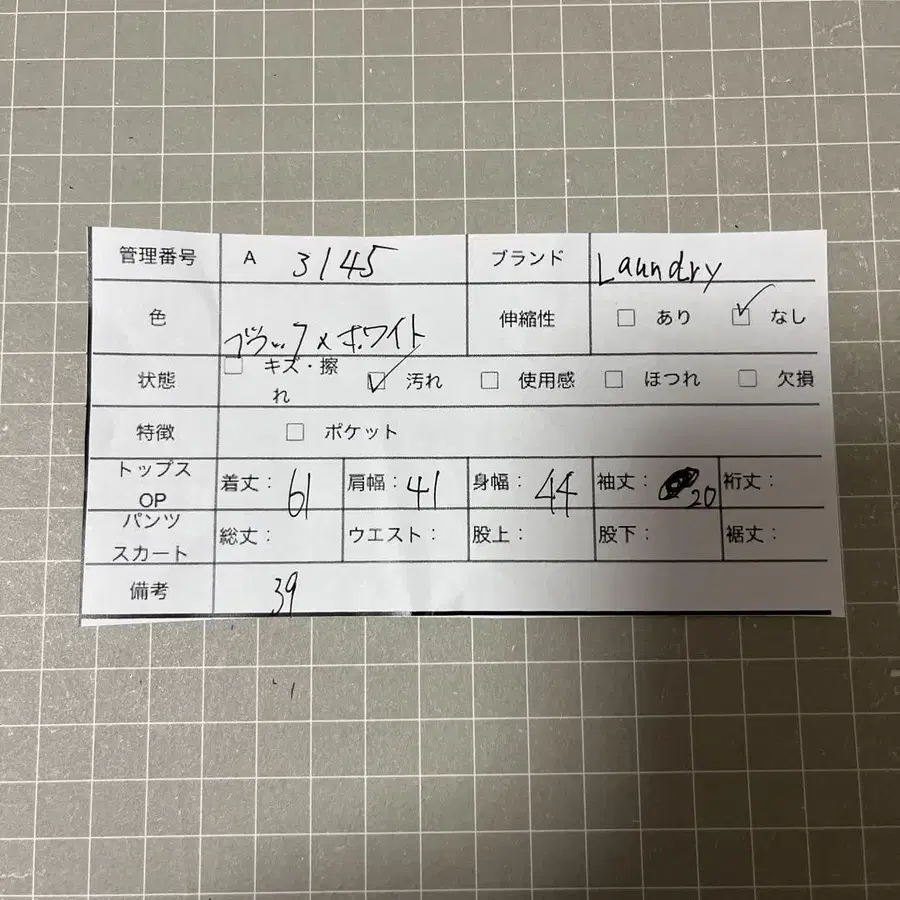 管理番号 A 3145 ブランド Laundry
色 ブラック×ホワイト 伸縮性 □ あり ☑ なし
状態 □ キズ・擦れ ☑ 汚れ □ 使用感 □ ほつれ □ 欠損
特徴 □ ポケット
トップス OP 着丈: 61 肩幅: 41 身幅: 44 袖丈: 20 裄丈:
パンツ スカート 総丈: ウエスト: 股上: 股下: 裾丈:
備考 39